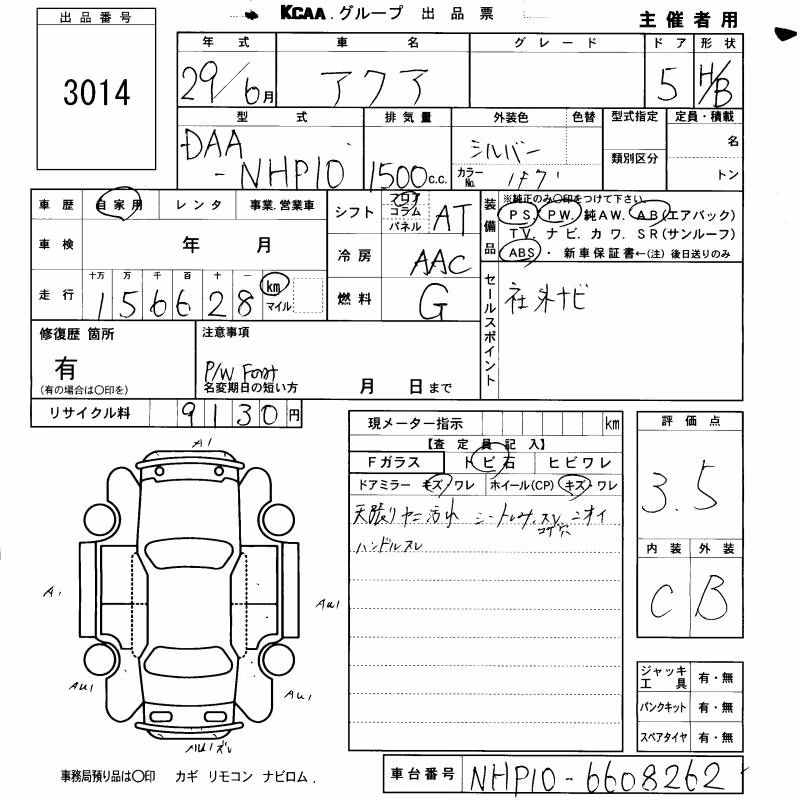 出品番号
3014
KCAA.グループ 出品票
主催者用
年式 車名 グレード ドア 形状
29/6月 アクア 5 H/B
型式 排気量 外装色 色替 型式指定 定員・積載
類別区分
DAA-NHP10 1500c.c. シルバー 名
カラーNo. 1F7 トン
車歴 自家用 レンタ 事業.営業車
車検 年 月
走行 十万 万 千 百 十 一
156628 km マイル
シフト フロア コラム パネル AT
冷房 AAC
燃料 G
装備品
※純正のみ○印をつけて下さい。
PS. PW. 純AW. AB(エアバック)
TV. ナビ. カワ. SR(サンルーフ)
ABS・ 新車保証書←(注)後日送りのみ
セールスポイント
社外ナビ
修復歴 箇所
有
(有の場合は○印を)
注意事項
P/W
名変期日の短い方 月 日まで
リサイクル料 9130円
現メーター指示 km
【査定員記入】
Fガラス トビ石 ヒビワレ
ドアミラー キズ・ワレ ホイール(CP) キズ・ワレ
天張りヤニ汚れ シート スレ コゲ穴 ニオイ
ハンドルスレ
評価点
3.5
内装 外装
C B
ジャッキ工具 有・無
パンクキット 有・無
スペアタイヤ 有・無
A1
A1
AU1
AU1
AU1
事務局預り品は○印 カギ リモコン ナビロム.
車台番号 NHP10-6608262